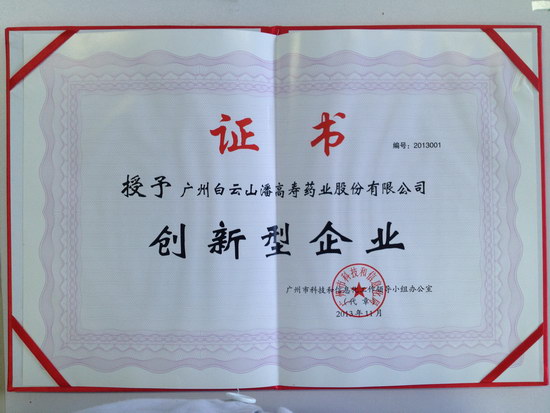 证书
编号：2013001
授予 广州白云山潘高寿药业股份有限公司
创新型企业
广州市科技和信息化工作领导小组办公室
（代章）
2013年11月